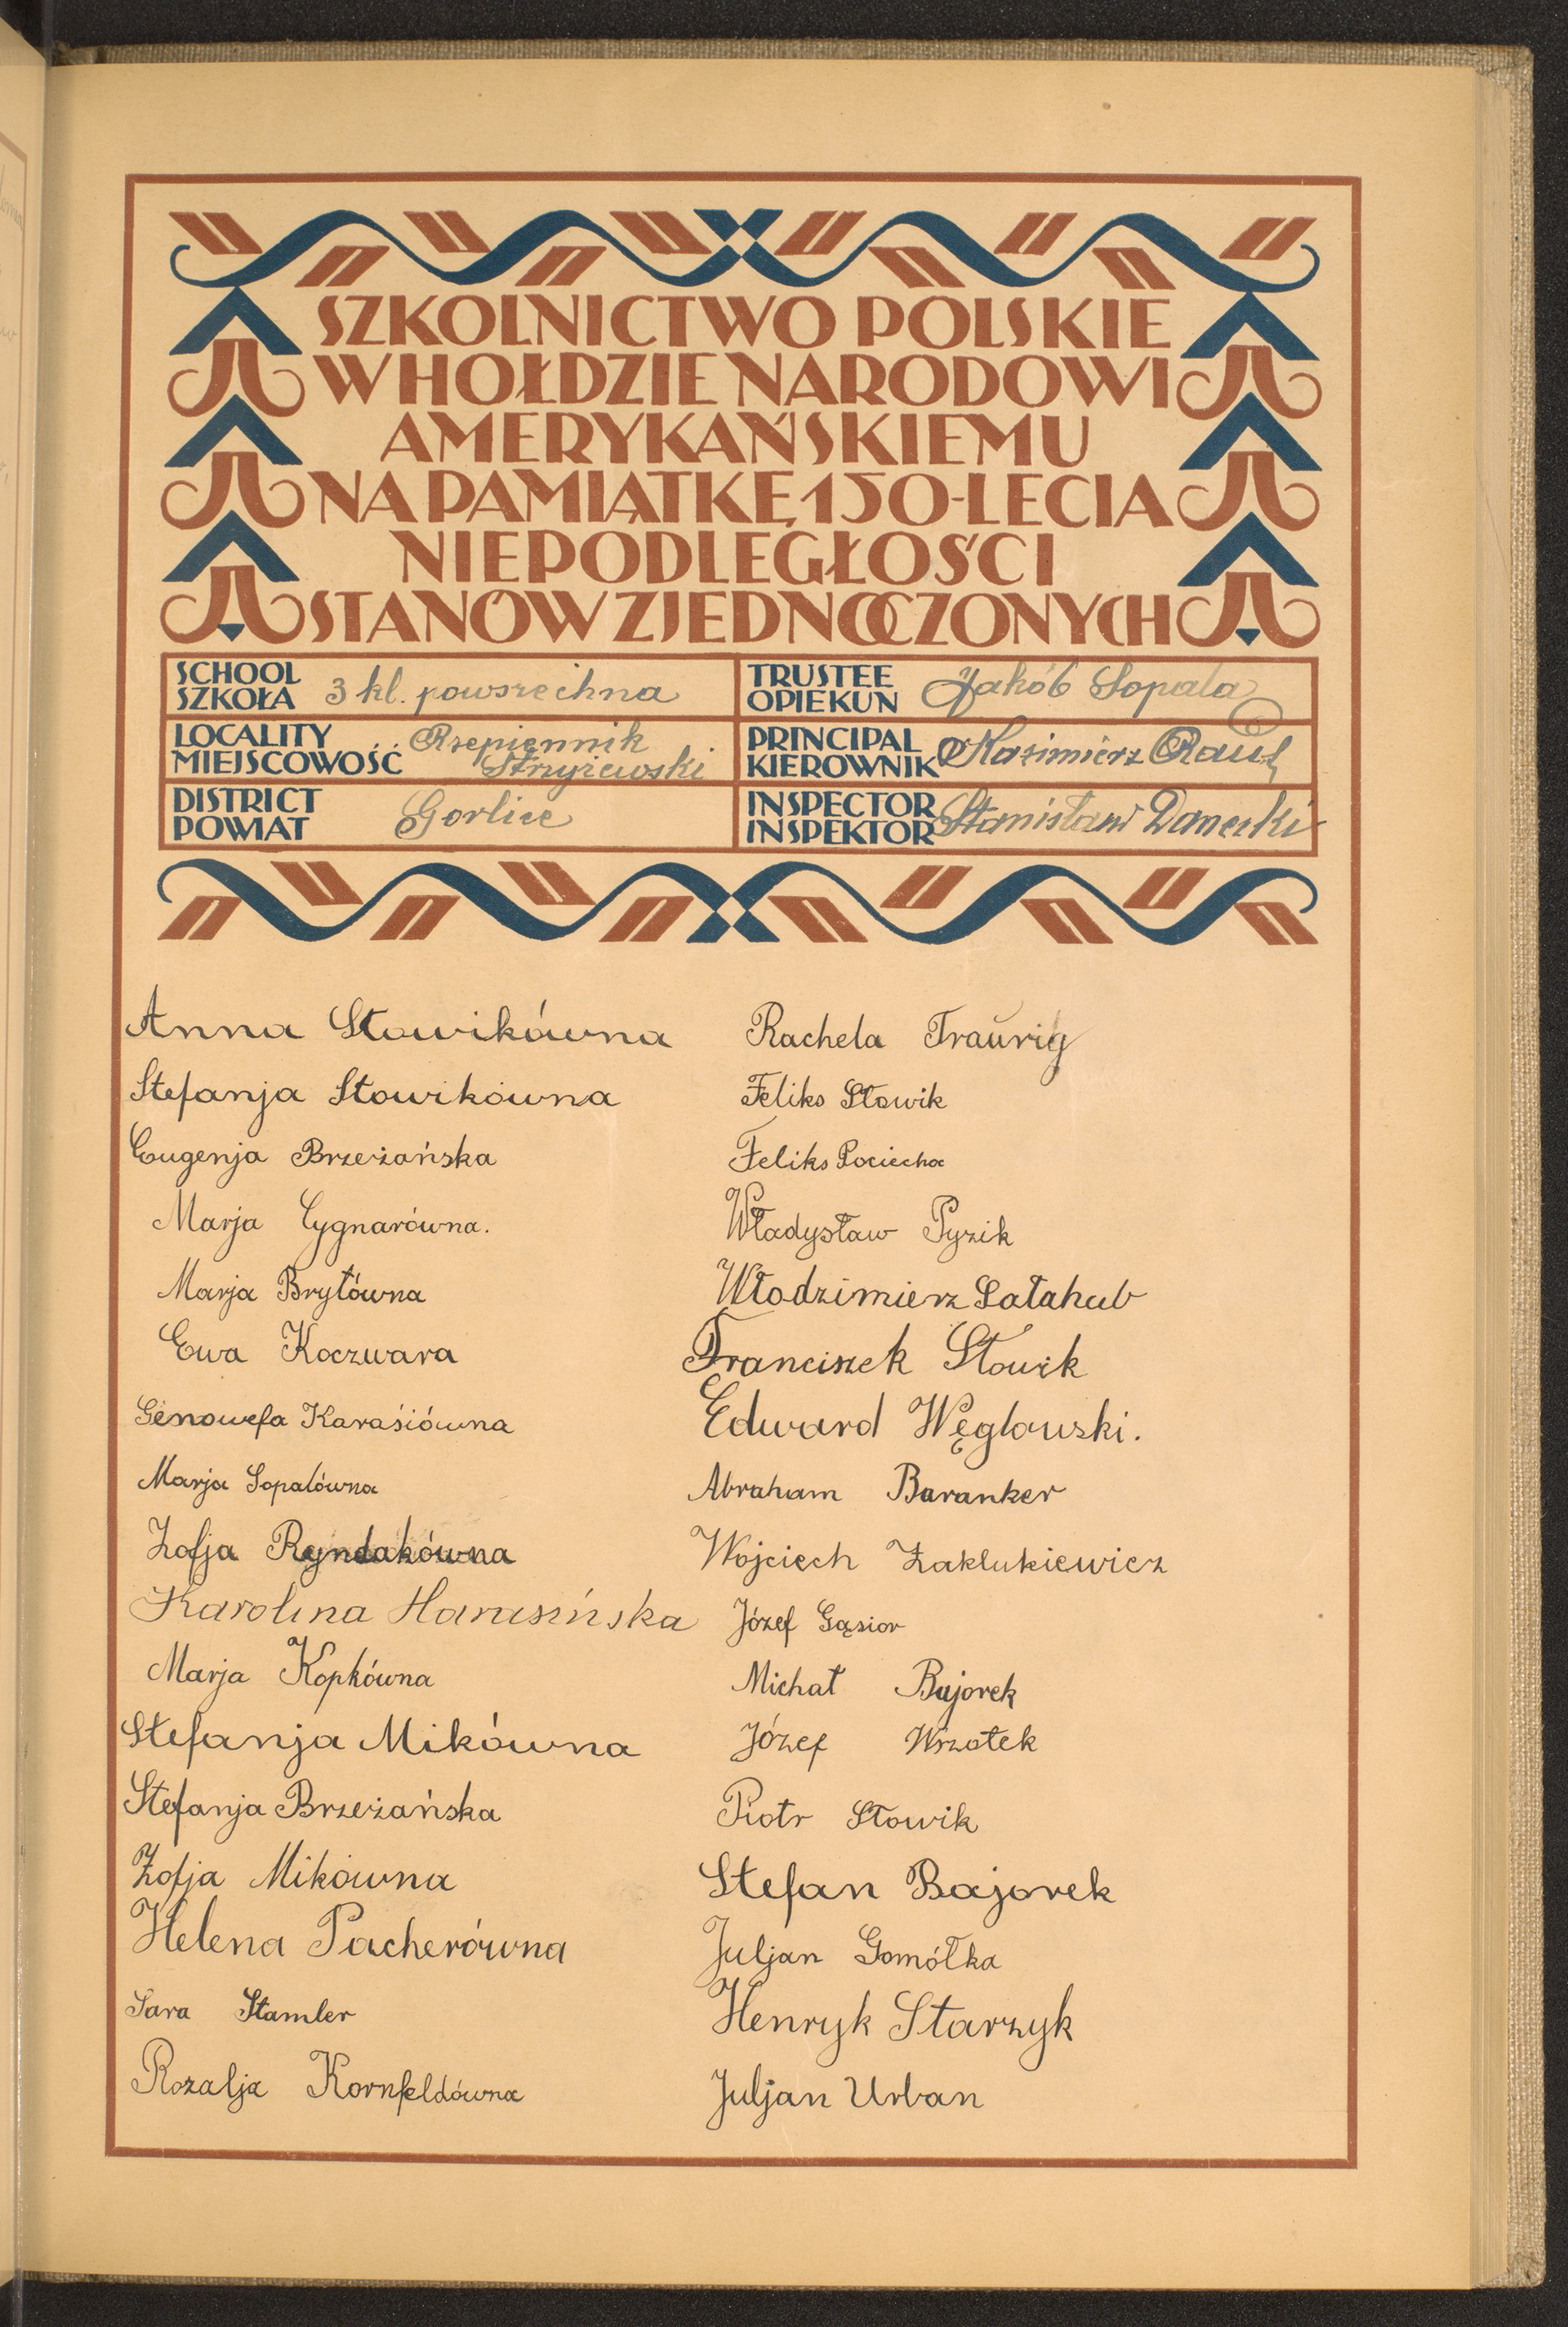 SZKOLNICTWO POLSKIE
W HOŁDZIE NARODOWI
AMERYKAŃSKIEMU
NA PAMIĄTKĘ 150-LECIA
NIEPODLEGŁOŚCI
STANÓW ZJEDNOCZONYCH
SCHOOL
SZKOŁA 3 kl. powszechna
TRUSTEE
OPIEKUN Jakób Sopala
LOCALITY
MIEJSCOWOŚĆ Rzepiennik
Strzyżewski
PRINCIPAL
KIEROWNIK Kazimierz
DISTRICT
POWIAT Gorlice
INSPECTOR
INSPEKTOR Stanisław Danecki
Anna Słowikówna
Stefanja Słowikówna
Eugenja Brzeżańska
Marja Cygnarówna.
Marja Brytówna
Ewa Koczwara
Genowefa Karaśiówna
Marja Sopalówna
Zofja Ryndakówna
Karolina Haruszińska
Marja Kopkówna
Stefanja Mikówna
Stefanja Brzeżańska
Zofja Mikówna
Helena Pacherówna
Sara Stamler
Rozalja Kornfeldówna
Rachela Traurig
Feliks Słowik
Feliks Pociecha
Władysław Pyzik
Włodzimierz Sałahub
Franciszek Słowik
Edward Węglowski.
Abraham Baranker
Wojciech Zaklukiewicz
Józef Gąsior
Michał Bajorek
Józef Wszołek
Piotr Słowik
Stefan Bajorek
Juljan Gomółka
Henryk Starzyk
Juljan Urban